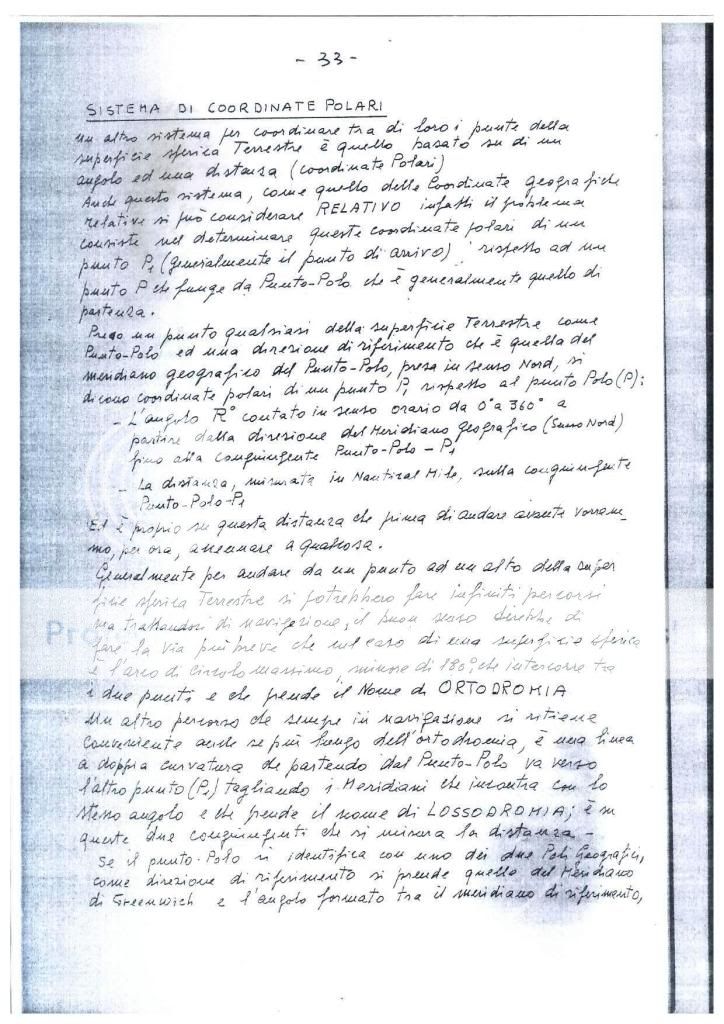 - 33 -
SISTEMA DI COORDINATE POLARI
un altro sistema per coordinare tra di loro i punti della
superficie sferica Terrestre è quello basato su di un
angolo ed una distanza (coordinate Polari)
Anche questo sistema, come quello delle Coordinate geografiche
relative si può considerare RELATIVO infatti il problema
consiste nel determinare queste coordinate polari di un
punto P₁ (generalmente il punto di arrivo) rispetto ad un
punto P che funge da Punto-Polo che è generalmente quello di
partenza.
Preso un punto qualsiasi della superficie Terrestre come
Punto-Polo ed una direzione di riferimento che è quella del
meridiano geografico del Punto-Polo, preso in senso Nord, si
dicono coordinate polari di un punto P₁ rispetto al punto Polo (P):
- L'angolo R° contato in senso orario da 0° a 360° a
partire dalla direzione del Meridiano geografico (Senso Nord)
fino alla congiungente Punto-Polo - P₁
- La distanza, misurata in Nautical Mile, sulla congiungente
Punto-Polo-P₁
Ed è proprio su questa distanza che prima di andare avante vorrem-
mo, per ora, accennare a qualcosa.
Generalmente per andare da un punto ad un altro della super
ficie sferica Terrestre si potrebbero fare infiniti percorsi
ma trattandosi di navigazione, il buon senso direbbe di
fare la via più breve che nel caso di una superficie sferica
è l'arco di circolo massimo, minore di 180°, che intercorre tra
i due punti e che prende il Nome di ORTODROMIA
Un altro percorso che sempre in navigazione si ritiene
conveniente anche se più lungo dell'ortodromia, è una linea
a doppia curvatura che partendo dal Punto-Polo va verso
l'altro punto (P₁) tagliando i Meridiani che incontra con lo
stesso angolo e che prende il nome di LOSSODROMIA; è su
queste due congiungenti che si misura la distanza -
Se il punto-Polo si identifica con uno dei due Poli Geografici,
come direzione di riferimento si prende quella del Meridiano
di Greenwich e l'angolo formato tra il meridiano di riferimento,